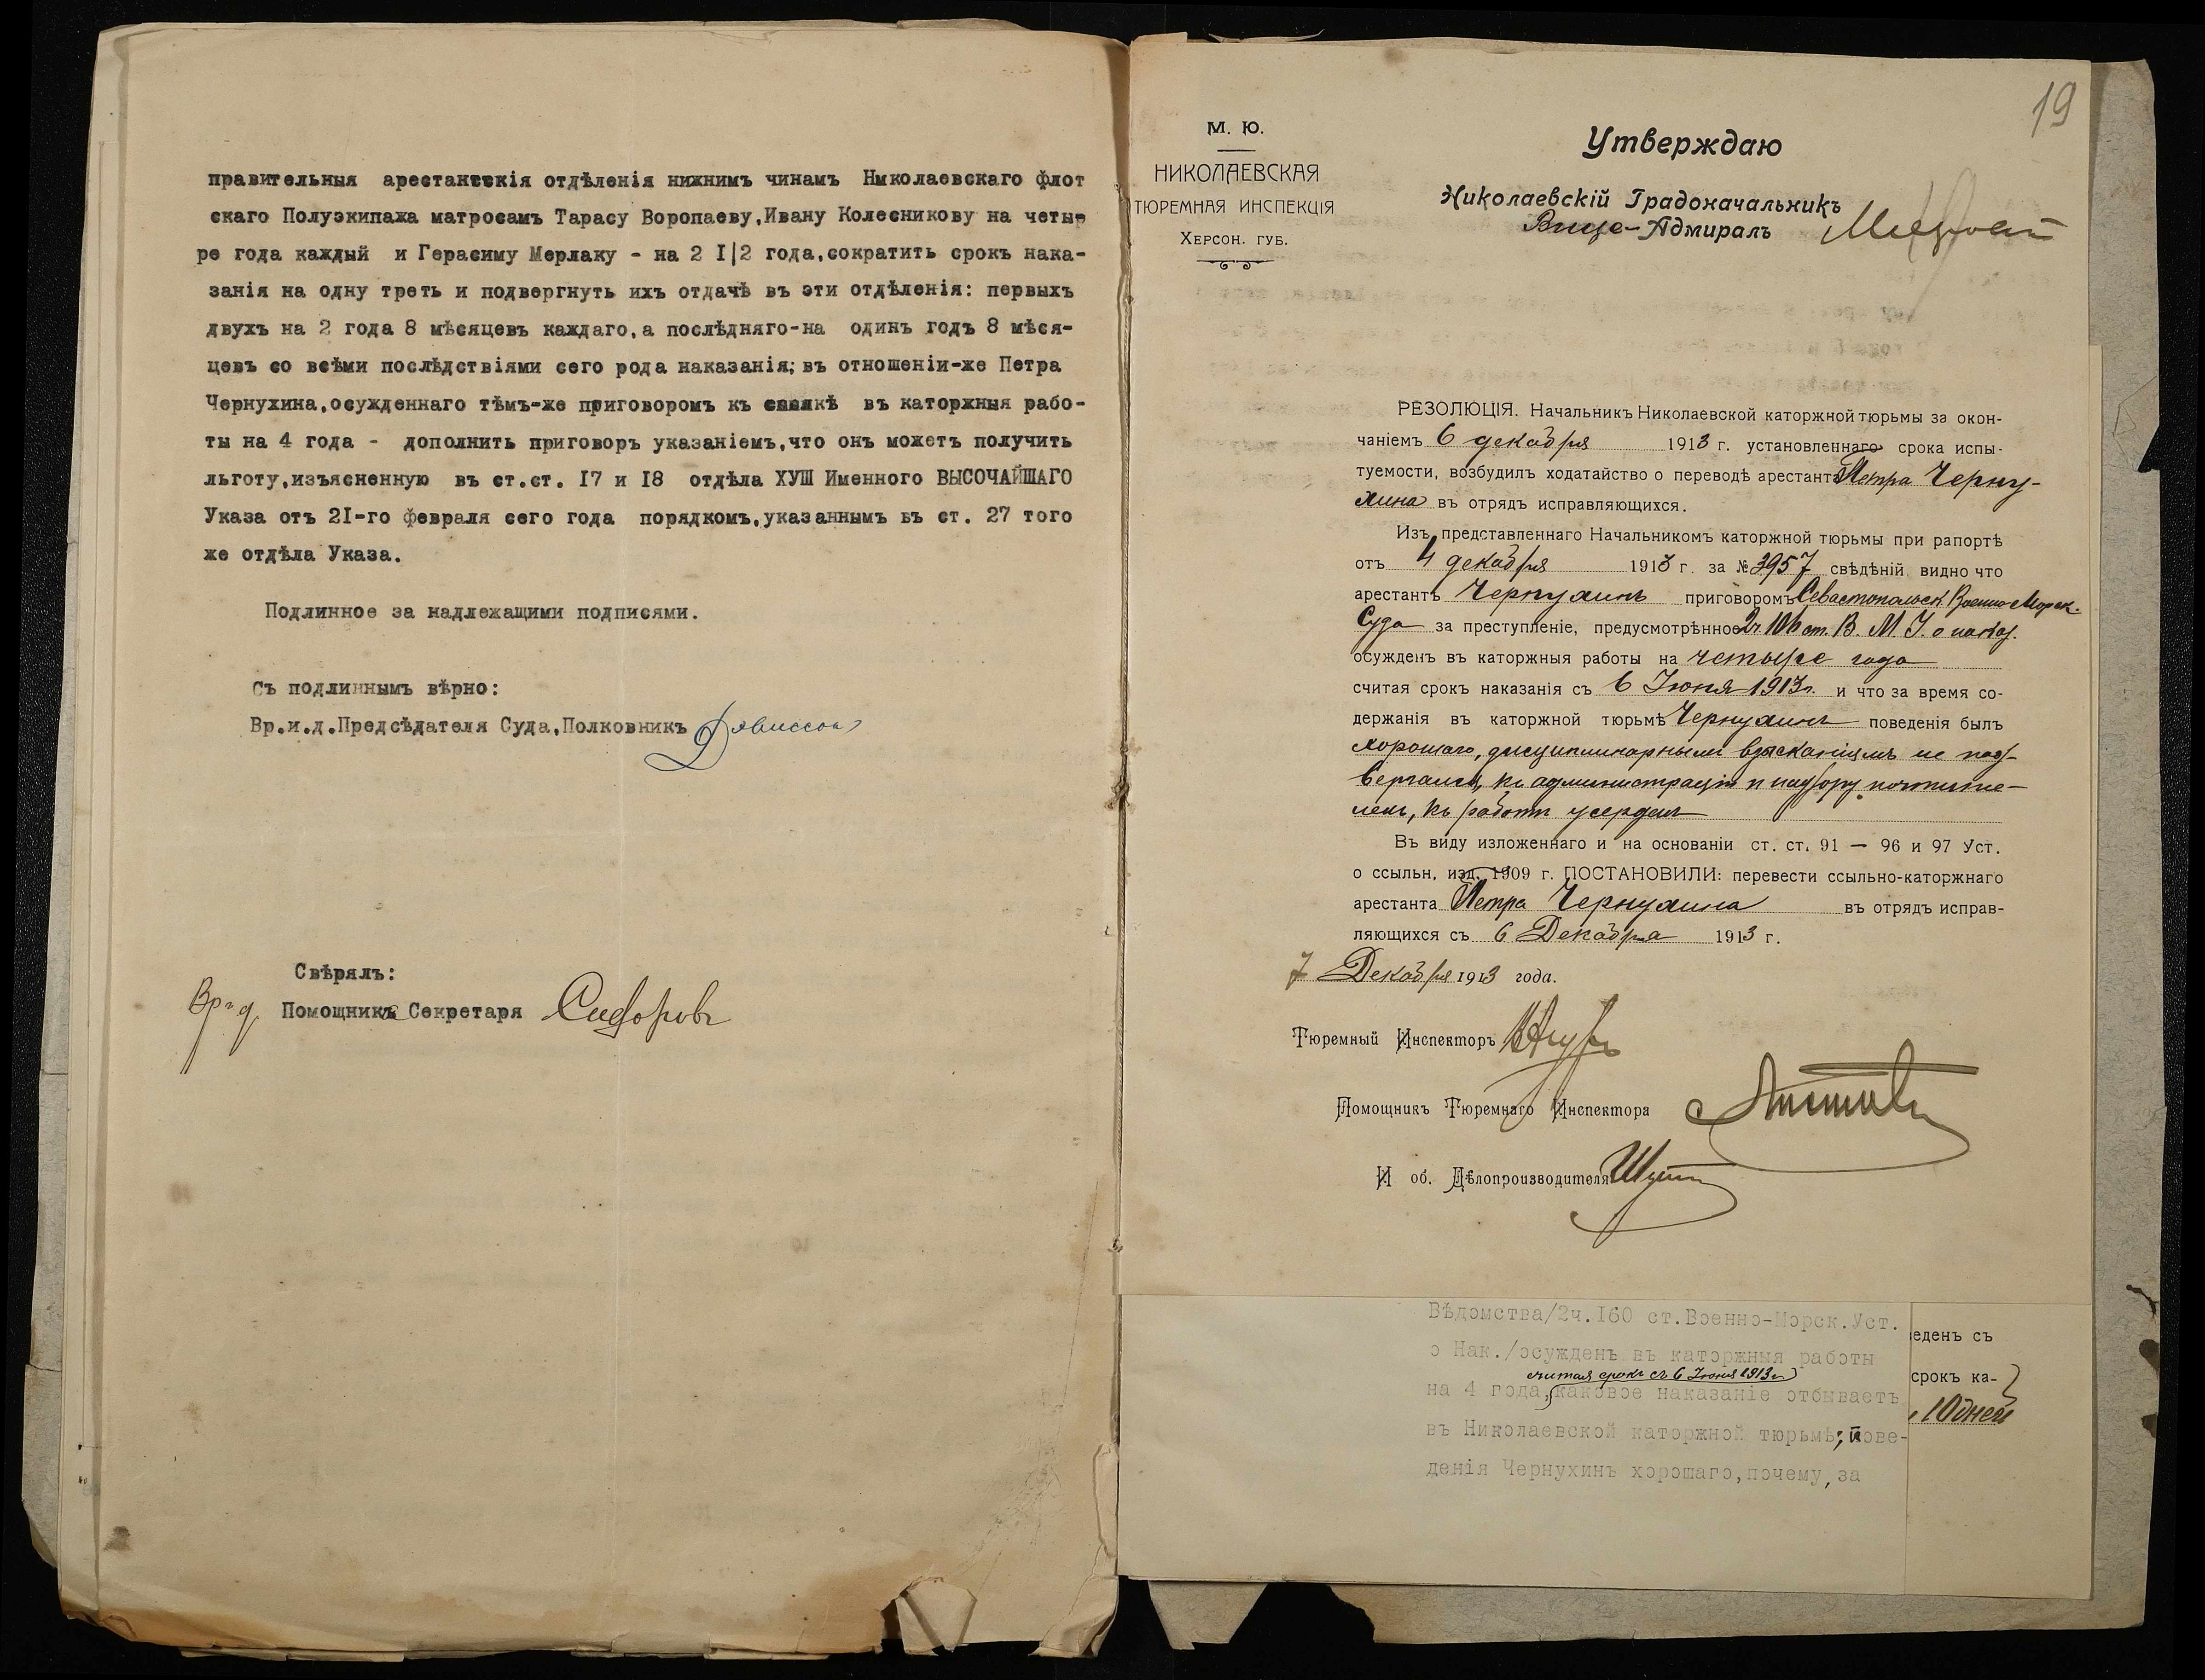 правительныя арестантскія отдѣленія нижнимъ чинамъ Николаевскаго флот
скаго Полуэкипажа матросамъ Тарасу Воропаеву,Ивану Колесникову на четы-
ре года каждый и Герасиму Мерлаку - на 2 I/2 года,сократить срокъ нака-
занія на одну треть и подвергнуть ихъ отдачѣ въ эти отдѣленія: первыхъ
двухъ на 2 года 8 мѣсяцевъ каждаго,а послѣдняго-на одинъ годъ 8 мѣся-
цевъ со всѣми послѣдствіями сего рода наказанія; въ отношеніи-же Петра
Чернухина,осужденнаго тѣмъ-же приговоромъ къ ссылкѣ въ каторжныя рабо-
ты на 4 года - дополнить приговоръ указаніемъ,что онъ можетъ получить
льготу,изъясненную въ ст.ст. I7 и I8 отдѣла ХУШ Именного ВЫСОЧАЙШАГО
Указа отъ 2I-го февраля сего года порядкомъ,указаннымъ въ ст. 27 того
же отдѣла Указа.
Подлинное за надлежащими подписями.
Съ подлиннымъ вѣрно:
Вр.и.д.Предсѣдателя Суда,Полковникъ
Свѣрялъ:
Вр.и.д. Помощника Секретаря Сидоровъ
19
М. Ю.
НИКОЛАЕВСКАЯ
ТЮРЕМНАЯ ИНСПЕКЦІЯ
ХЕРСОН. ГУБ.
Утверждаю
Николаевскій Градоначальникъ
Вице-Адмиралъ
РЕЗОЛЮЦІЯ. Начальникъ Николаевской каторжной тюрьмы за окон-
чаніемъ 6 декабря 1913 г. установленнаго срока испы-
туемости, возбудилъ ходатайство о переводѣ арестанта Петра Черну-
хина въ отрядъ исправляющихся.
Изъ представленнаго Начальникомъ каторжной тюрьмы при рапортѣ
отъ 4 декабря 1913 г. за № 3957 свѣдѣній видно что
арестантъ Чернухинъ приговоромъ Севастопольск Военно-Морск.
Суда за преступленіе, предусмотрѣнное 2ч 106 ст. В. М. У. о наказ.
осужденъ въ каторжныя работы на четыре года
считая срокъ наказанія съ 6 Іюня 1913г. и что за время со-
держанія въ каторжной тюрьмѣ Чернухинъ поведенія былъ
хорошаго, дисциплинарнымъ взысканіямъ не под-
вергался, къ администраціи и надзору почтите-
ленъ, къ работѣ усерденъ
Въ виду изложеннаго и на основаніи ст. ст. 91 — 96 и 97 Уст.
о ссыльн, изд. 1909 г. ПОСТАНОВИЛИ: перевести ссыльно-каторжнаго
арестанта Петра Чернухина въ отрядъ исправ-
ляющихся съ 6 Декабря 1913 г.
7 Декабря 1913 года.
Тюремный Инспекторъ
Помощникъ Тюремнаго Инспектора
И об. Дѣлопроизводителя
Вѣдомства/2ч.I60 ст.Военно-Морск.Уст.
о Нак./осужденъ въ каторжныя работы
считая срокъ съ 6 Іюня 1913г.
на 4 года,каковое наказаніе отбываетъ
въ Николаевской каторжной тюрьмѣ; пове-
денія Чернухинъ хорошаго,почему,за
еденъ съ
срокъ ка-
10 дней